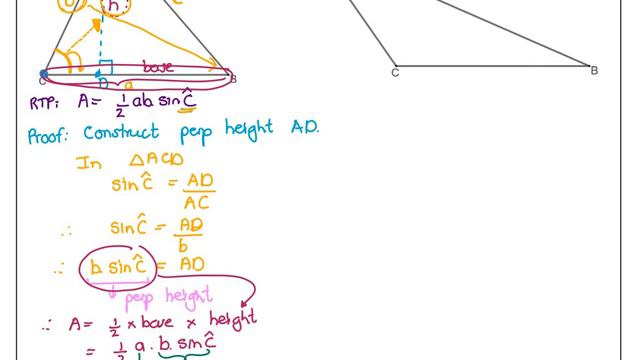 b h
c
base
C D B
a
C B
RTP: A = 1/2 ab sin Ĉ
Proof: Construct perp height AD.
In △ACD
sin Ĉ = AD/AC
∴ sin Ĉ = AD/b
∴ b. sin Ĉ = AD
perp height
∴ A = 1/2 × base × height
= 1/2 a . b. sin Ĉ